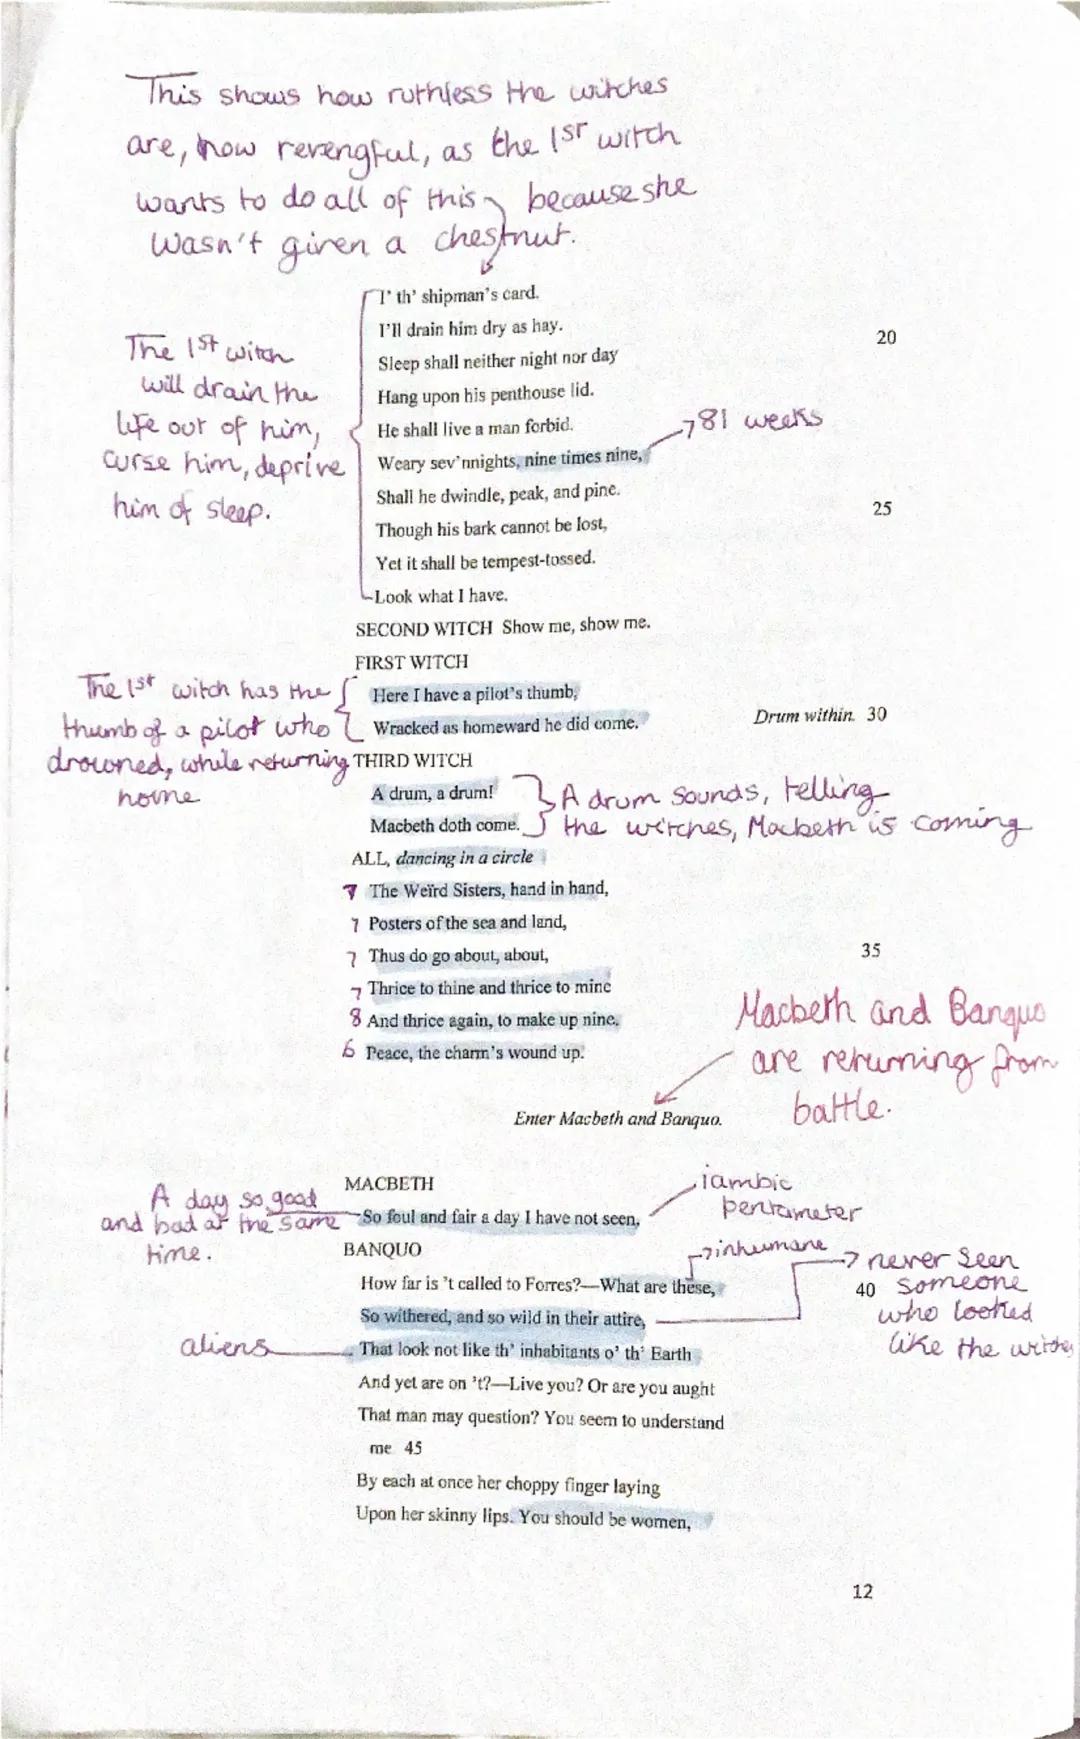 This shows how ruthless the witches
are, how revengful, as the 1st witch
wants to do all of this because she
wasn't given a chestnut.
I' th' shipman's card.
I'll drain him dry as hay.
20
Sleep shall neither night nor day
Hang upon his penthouse lid.
He shall live a man forbid.
Weary sev'nnights, nine times nine,
81 weeks
Shall he dwindle, peak, and pine.
25
Though his bark cannot be lost,
Yet it shall be tempest-tossed.
Look what I have.
The 1st witch
will drain the
life out of him,
curse him, deprive
him of sleep.
SECOND WITCH Show me, show me.
FIRST WITCH
Here I have a pilot's thumb,
Wracked as homeward he did come.
Drum within. 30
The 1st witch has the
thumb of a pilot who
drowned, while returning
home
THIRD WITCH
A drum, a drum!
Macbeth doth come.
A drum sounds, telling
the witches, Macbeth is coming
ALL, dancing in a circle
7 The Weïrd Sisters, hand in hand,
7 Posters of the sea and land,
7 Thus do go about, about,
35
7 Thrice to thine and thrice to mine
8 And thrice again, to make up nine.
6 Peace, the charm's wound up.
Macbeth and Banquo
are returning from
battle.
Enter Macbeth and Banquo.
MACBETH
So foul and fair a day I have not seen.
iambic
pentameter
A day so good
and bad at the same
time.
BANQUO
How far is 't called to Forres?—What are these,
inhumane
40
So withered, and so wild in their attire,
never seen
someone
who looked
like the witches
That look not like th' inhabitants o' th' Earth
aliens
And yet are on 't?—Live you? Or are you aught
That man may question? You seem to understand
me 45
By each at once her choppy finger laying
Upon her skinny lips. You should be women,
12